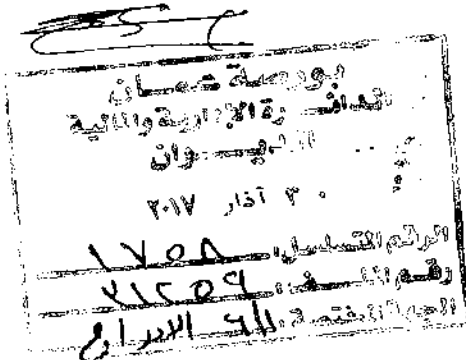 بورصة عمان
الدائرة الإدارية والمالية
الديوان
٣٠ آذار ٢٠١٧
الرقم المتسلسل: ١٧٥٨
رقم الملف: ٣١٢٥٩
الجهة المختصة: